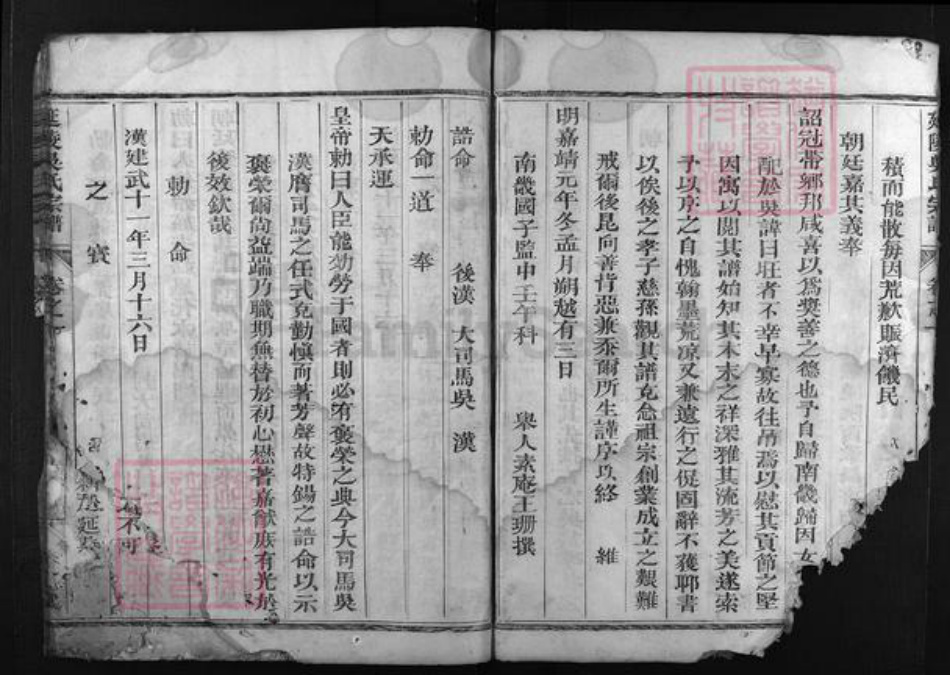 積而能散每因荒歉賑濟饑民
朝廷嘉其義奉
詔冠帶鄉邦咸喜以為獎善之德也予自歸南畿歸因女
配於吳諱日旺者不幸早寡故往吊焉以慰其貞節之堅
因寓以閱其譜始知其本末之祥深雅其流芳之美遂索
予以序之自愧翰墨荒凉又兼遠行之促固辭不獲聊書
以俟後之孝子慈孫觀其譜克念祖宗創業成立之艱難
戒爾後昆向善背惡兼忝爾所生謹序以終 維
明嘉靖元年冬孟月朔越有三日
南畿國子監中壬午科 舉人素庵王珊撰
誥命 後漢 大司馬吳 漢
勅命一道 奉
天承運
皇帝勅曰人臣能効勞于國者則必有褒榮之典今大司馬吳
漢膺司馬之任式克勤慎而著芳聲故特錫之誥命以示
褒榮爾尚益端乃職期無替於初心懋著嘉猷庶有光於
後效欽哉
勅 命
漢建武十一年三月十六日
之 寶
不可
於延
延陵吳氏宗譜 卷之一